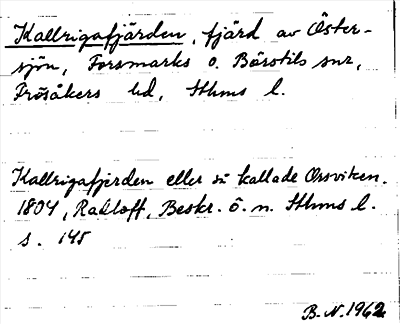 Kallrigafjärden, fjärd av Öster-
sjön, Forsmarks o. Börstils snr,
Frösåkers hd, Sthms l.
Kallrigafjerden eller så kallade Orsviken.
1804, Radloff, Beskr. ö. n. Sthms l.
s. 145
B.N. 1962